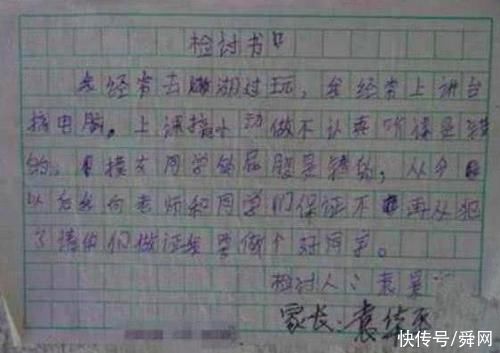 检讨书
我经常去湖过玩，我经常上讲台
按电脑。上课搞小动做不认真听课是错
的。摸女同学的屁股是错的，从今
以后我向老师和同学们保证不再从犯
了请你们做证我要做个好同学。
检讨人：袁昊
家长：袁
快传号/舜网